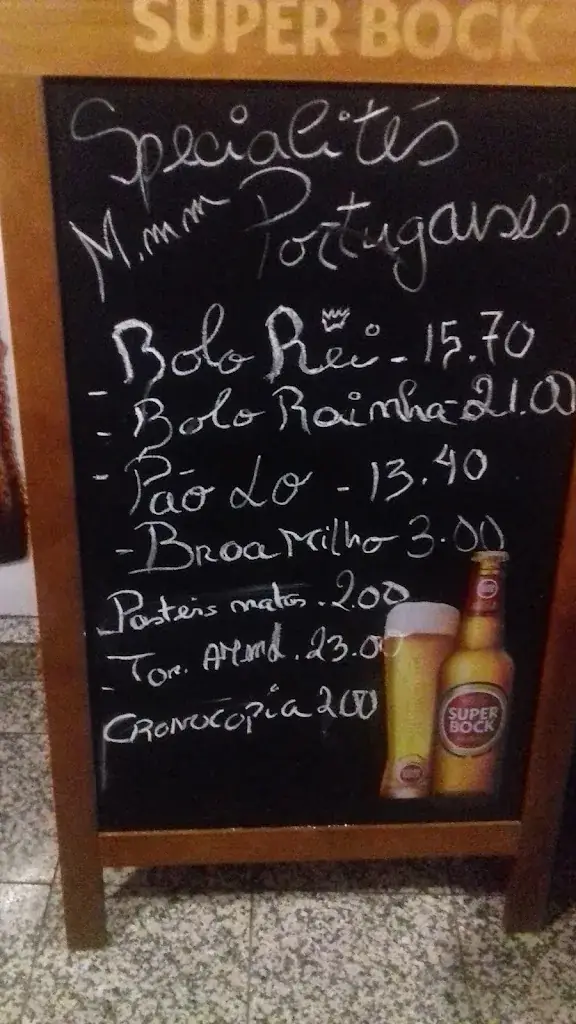 SUPER BOCK
Specialités
M.mm Portugaises
- Bolo Rei - 15.70
- Bolo Rainha - 21.00
- Pão Lo - 13.40
- Broa Milho 3.00
Pasteis natas. 2.00
- Tor. Amend. 23.00
CRONOCÓPIA 2.00
SUPER
BOCK